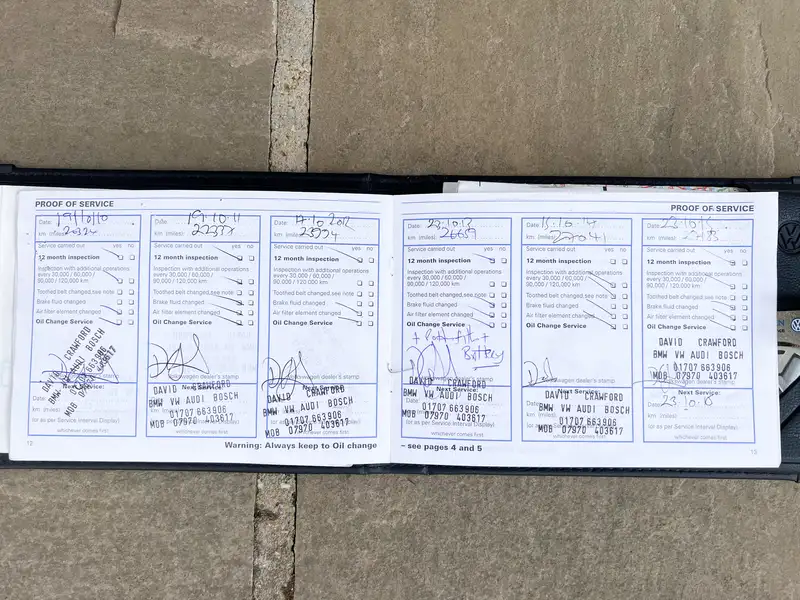 PROOF OF SERVICE
Date: 19/10/10
km (miles)
Service carried out yes no
12 month inspection
Inspection with additional operations
every 30,000 / 60,000 /
90,000 / 120,000 km
Toothed belt changed, see note
Brake fluid changed
Air filter element changed
Oil Change Service
DAVID CRAWFORD
BMW VW AUDI BOSCH
01707 663906
MOB 07970 403617
Next Service:
Date:
km (miles)
(or as per Service Interval Display)
whichever comes first
12
Date: 19.10.11
km (miles)
Service carried out yes no
12 month inspection
Inspection with additional operations
every 30,000 / 60,000 /
90,000 / 120,000 km
Toothed belt changed, see note
Brake fluid changed
Air filter element changed
Oil Change Service
Volkswagen dealer's stamp
Next Service:
DAVID CRAWFORD
BMW VW AUDI BOSCH
01707 663906
MOB 07970 403617
(or as per Service Interval Display)
whichever comes first
Date: 17.10.2012
km (miles)
Service carried out yes no
12 month inspection
Inspection with additional operations
every 30,000 / 60,000 /
90,000 / 120,000 km
Toothed belt changed, see note
Brake fluid changed
Air filter element changed
Oil Change Service
Volkswagen dealer's stamp
Next Service:
DAVID CRAWFORD
BMW VW AUDI BOSCH
01707 663906
MOB 07970 403617
whichever comes first
Warning: Always keep to Oil change
PROOF OF SERVICE
Date:
km (miles) 26659
Service carried out yes no
12 month inspection
Inspection with additional operations
every 30,000 / 60,000 /
90,000 / 120,000 km
Toothed belt changed, see note
Brake fluid changed
Air filter element changed
Oil Change Service
+ Battery
Volkswagen dealer's stamp
DAVID CRAWFORD
Next Service:
BMW VW AUDI BOSCH
01707 663906
MOB 07970 403617
whichever comes first
– see pages 4 and 5
Date: 15.10.14
km (miles) 27041
Service carried out yes no
12 month inspection
Inspection with additional operations
every 30,000 / 60,000 /
90,000 / 120,000 km
Toothed belt changed, see note
Brake fluid changed
Air filter element changed
Oil Change Service
Volkswagen dealer's stamp
Next Service:
DAVID CRAWFORD
BMW VW AUDI BOSCH
01707 663906
MOB 07970 403617
whichever comes first
Date:
km (miles)
Service carried out yes no
12 month inspection
Inspection with additional operations
every 30,000 / 60,000 /
90,000 / 120,000 km
Toothed belt changed, see note
Brake fluid changed
Air filter element changed
Oil Change Service
DAVID CRAWFORD
BMW VW AUDI BOSCH
01707 663906
MOB 07970 403617
Next Service:
Date:
km (miles)
(or as per Service Interval Display)
whichever comes first
13